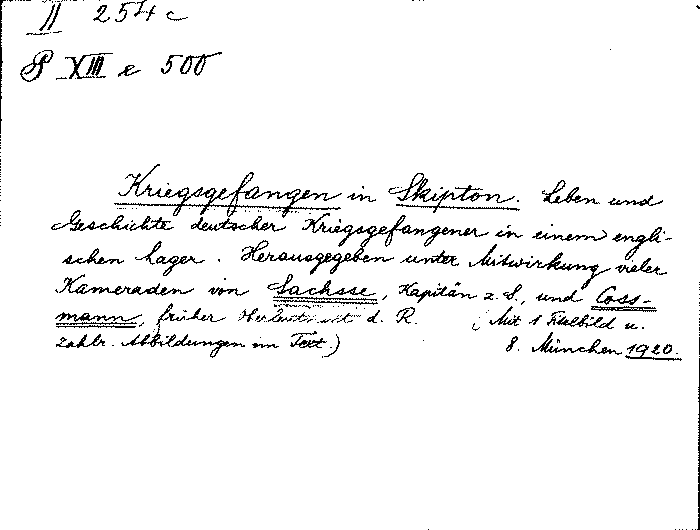 II 254 c
P XIII e 500
Kriegsgefangen in Skipton. Leben und
Geschichte deutscher Kriegsgefangener in einem engli-
schen Lager. Herausgegeben unter Mitwirkung vieler
Kameraden von Sachsse, Kapitän z. S., und Coss-
mann, früher d. R. (Mit 1 Titelbild u.
zahlr. Abbildungen im Text.) 8. München 1920.